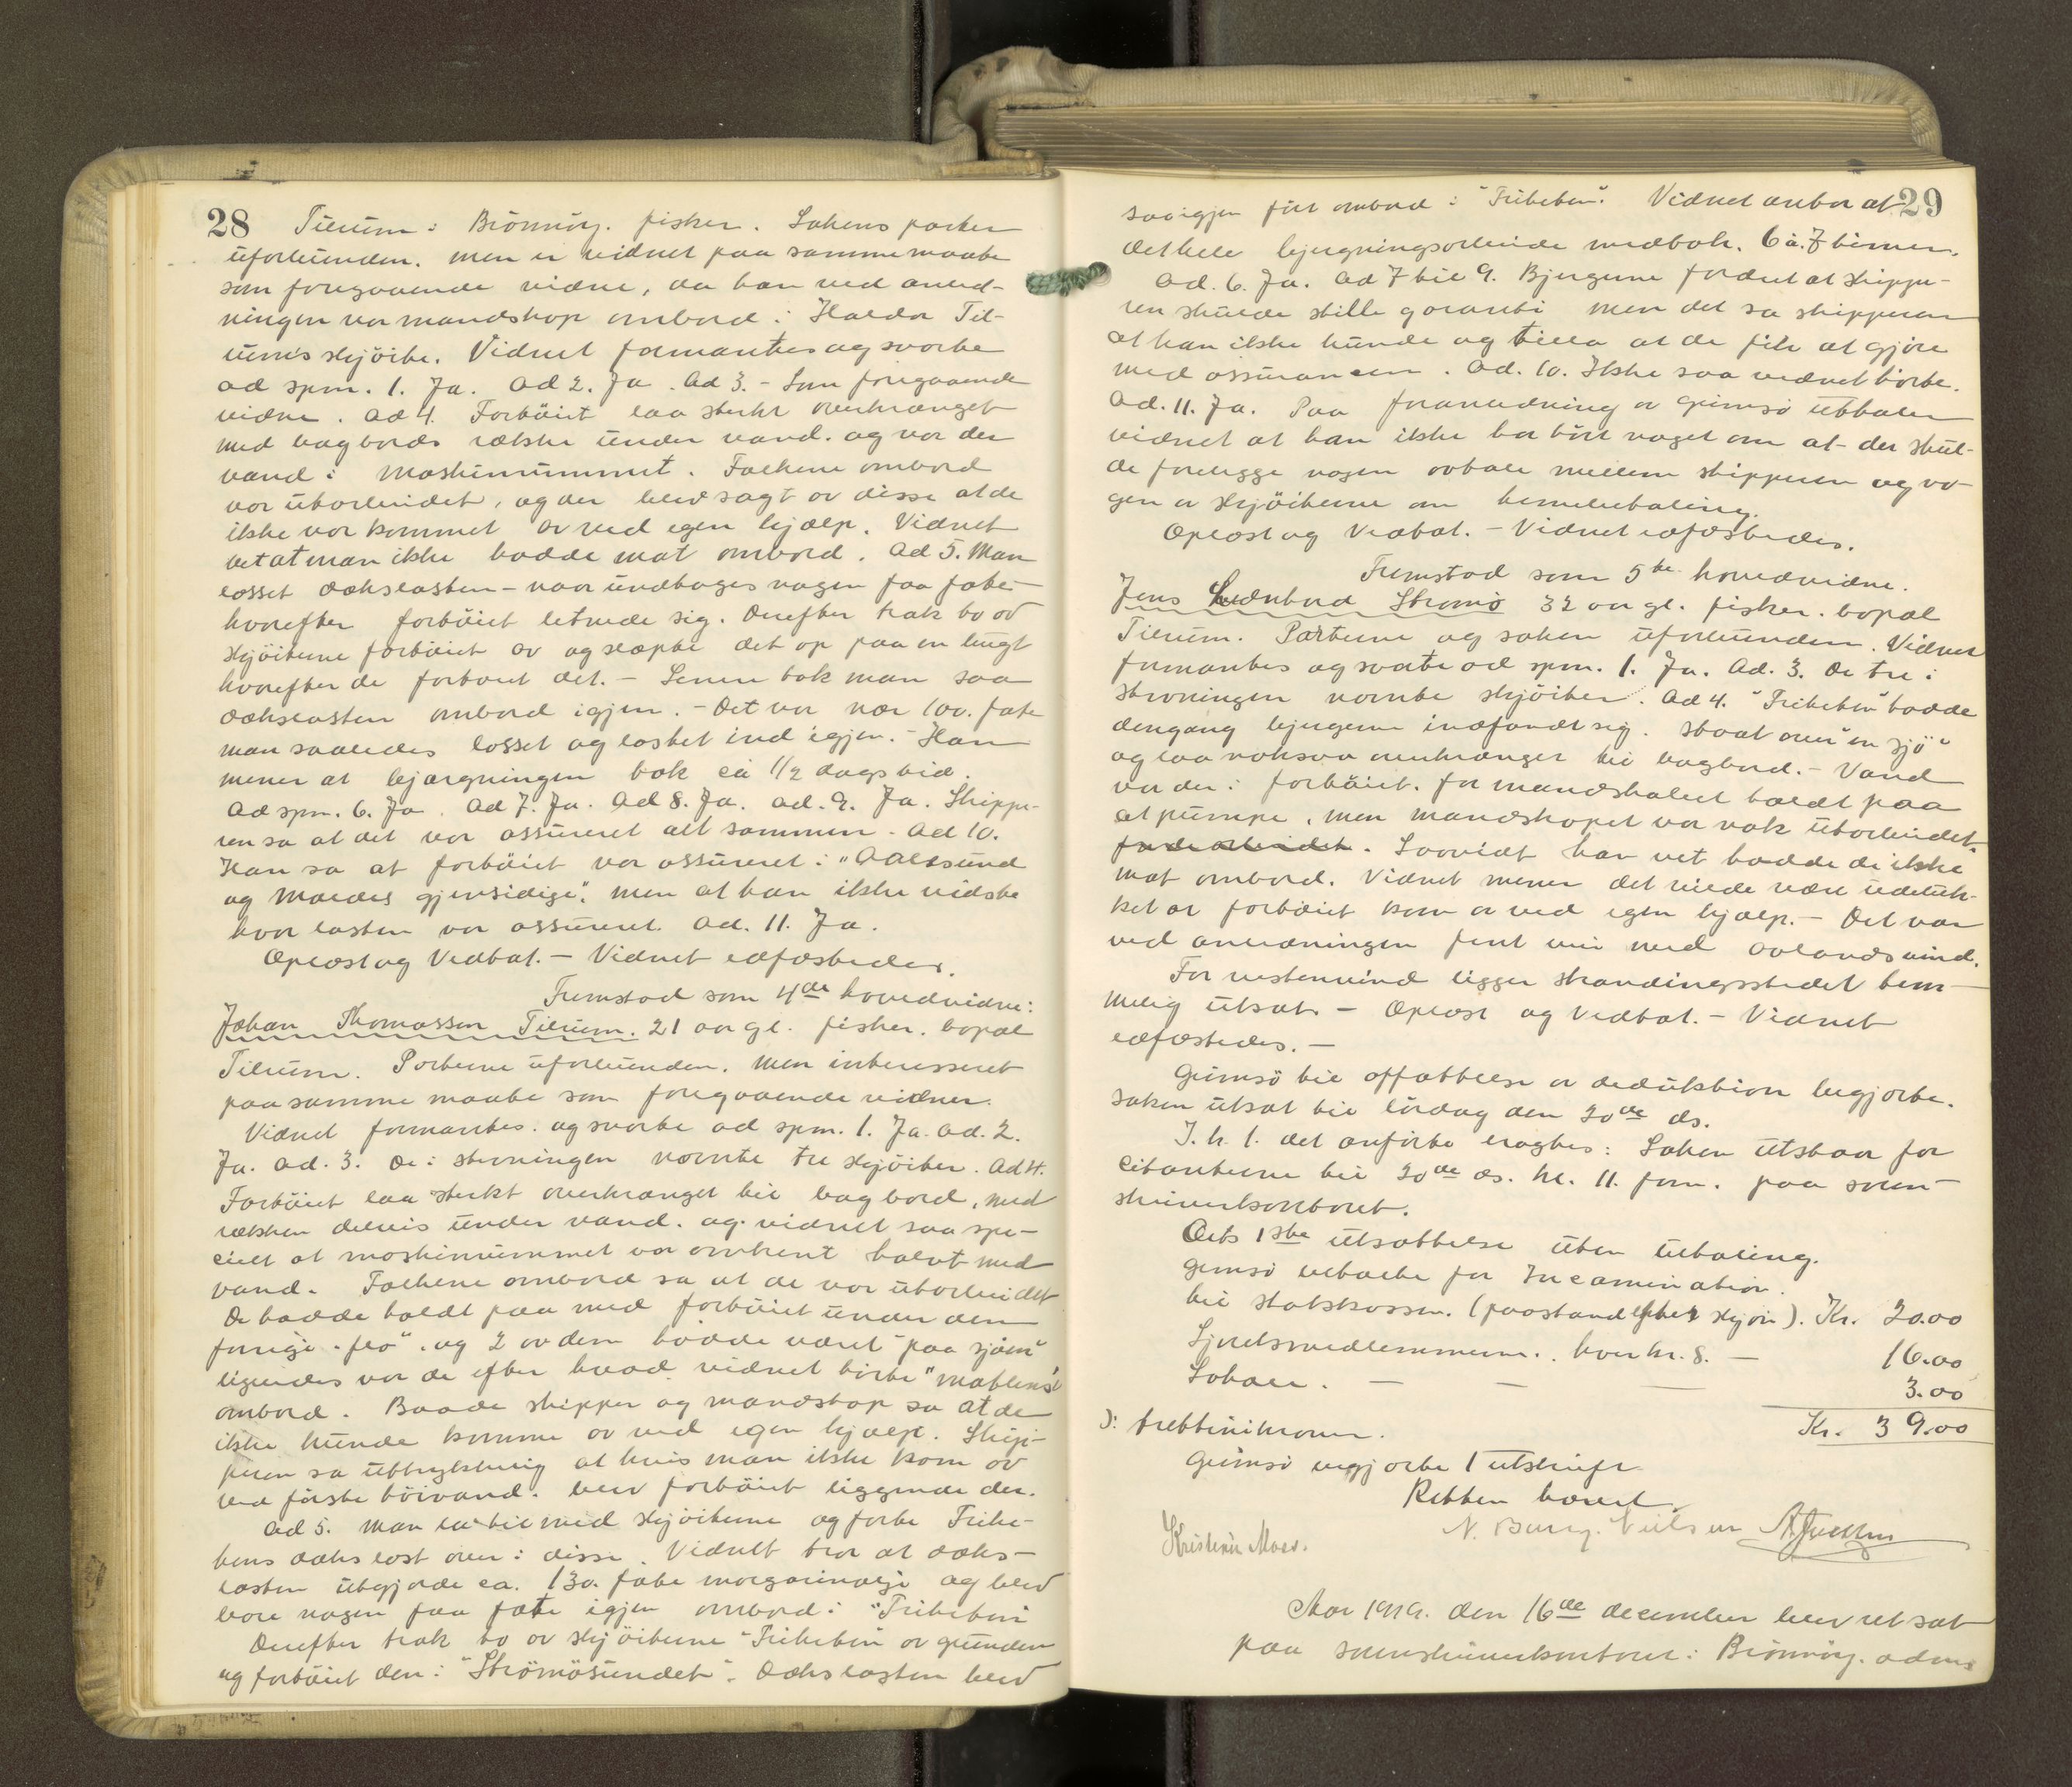 28
Tilrum i Brönnöy. fisker. Sakens parter
uforbunden. men er vidnet paa samme maate
som foregaaende vidne, da han ved anled-
ningen var mandskap ombord i Haldor Til-
rums skjöite. Vidnet formantes og svarte
ad spm. 1. Ja. Ad 2. Ja. Ad 3. - Som foregaaende
vidne. Ad 4. Fartöiet laa sterkt overkrænget
med bagbords række under vand. og var der
vand i maskinrummet. Folkene ombord
var utarbeidet, og der blev sagt av disse at de
ikke var kommet av ved egen hjælp. Vidnet
vet at man ikke hadde mat ombord. Ad 5. Man
losset dækslasten - naar undtages nogen faa fate -
hvorefter fartöiet letnede sig. Derefter trak to av
skjöiterne fartöiet av og slæpte det op paa en bugt
hvorefter de fortöiet det. - Senere tok man saa
dækslasten ombord igjen. - Det var nær 100. fate
man saaledes losset og lastet ind igjen. - Han
mener at bjærgningen tok ca 1/2 dags tid.
Ad spm. 6. Ja. Ad 7. Ja. Ad 8. Ja. ad. 9. Ja. Skippe-
ren sa at det var assureret alt sammen. - Ad 10.
Han sa at fartöiet var assureret i "Aalesund
og Moldes gjensidige". men at han ikke vidste
hvor lasten var assureret. Ad. 11. Ja.
Oplæst og Vedtat. - Vidnet edfæstedes.
Fremstod som 4de hovedvidne:
Johan Thomassen Tilrum. 21 aar gl. fisker. bopæl
Tilrum. Parterne uforbunden. men interesseret
paa samme maate som foregaaende vidner.
Vidnet formantes. og svarte ad spm. 1. Ja. ad. 2.
Ja. ad. 3. De i stevningen nævnte tre skjöiter. Ad 4.
Fartöiet laa sterkt overkrænget til bagbord, med
rækken delvis under vand. og vidnet saa spe-
cielt at maskinrummet var omtrent halvt med
vand. Folkene ombord sa at de var utarbeidet
De hadde holdt paa med fartöiet under den
forrige "flo". og 2 av dem hadde været "paa sjöen"
ligeledes var de efter hvad vidnet hörte "matlens"
ombord. Baade skipper og mandskap sa at de
ikke kunde komme av ved egen hjælp. Skip-
peren sa uttrykkelig at hvis man ikke kom av
ved förste höivand. blev fartöiet liggende der.
Ad 5. Man la til med skjöiterne og förte Trike-
bens dækslast over i disse. Vidnet tror at dæks-
lasten utgjorde ca. 130. fate margarinolje og blev
bare nogen faa fate igjen ombord i "Trikeben"
Derefter trak to av skjöiterne "Trikeben" av grunden
og fortöiet den i "Strömösundet". Dækslasten blev
29
saa igjen fört ombord i "Trikeben". Vidnet antar at
det hele bjergningsarbeide medtok. 6 à 7 timer.
Ad. 6. Ja. Ad 7 til 9. Bjergerne fordret at skippe-
ren skulde stille garanti men det sa skipperen
at han ikke kunde og tilla at de fik at gjöre
med assurancen. Ad. 10. Ikke saa vidnet hörte.
Ad. 11. Ja. Paa foranledning av Grimsö uttaler
vidnet at han ikke har hört noget om at der skul-
de foreligge nogen avtale mellem skipperen og no-
gen av skjöiterne om
Oplæst og Vedtat. - Vidnet edfæstedes.
Fremstod som 5te hovedvidne.
Jens Strømö 32 aar gl. fisker. bopæl
Tilrum. Parterne og saken uforbunden. Vidnet
formantes og svarte ad spm. 1. Ja. Ad. 3. De tre i
stevningen nævnte skjöiter. Ad 4. "Trikeben" hadde
dengang bjergerne indfandt sig. staat over "en sjö"
og laa noksaa overkrænget til bagbord. - Vand
var der i fartöiet. for mandskapet holdt paa
at pumpe, men mandskapet var nok utarbeidet.
Saavidt han vet hadde de ikke
mat ombord. Vidnet mener det vilde være udeluk-
ket at fartöiet kom av ved egen hjælp. - Det var
ved anledningen fint veir med avlandsvind.
For vestenvind ligger strandingsstedet tem-
melig utsat. - Oplæst og Vedtat. - Vidnet
edfæstedes. -
Grimsö til avfattelse av deduktion begjærte.
saken utsat til lördag den 20de ds.
I. h. t. det anförte eragtes: Saken utstaar for
citanterne til 20de ds. kl. 11. form. paa soren-
skriverkontoret.
Dets 1ste utsættelse uten utbetaling.
Grimsö betalte for Incamination.
til statskassen. (paastand efter skjön). Kr. 20.00
Sjöretsmedlemmerne. hver kr. 8. - 16.00
Lokale. - - - 3.00
ɔ: trettinikroner. Kr. 39.00
Grimsö begjærte 1 utskrift
Retten hævet.
Kristian Moes. N. Berg. Nielsen
Aar 1919. den 16de december blev ret sat
paa sorenskriverkontoret i Brönnöy. adms